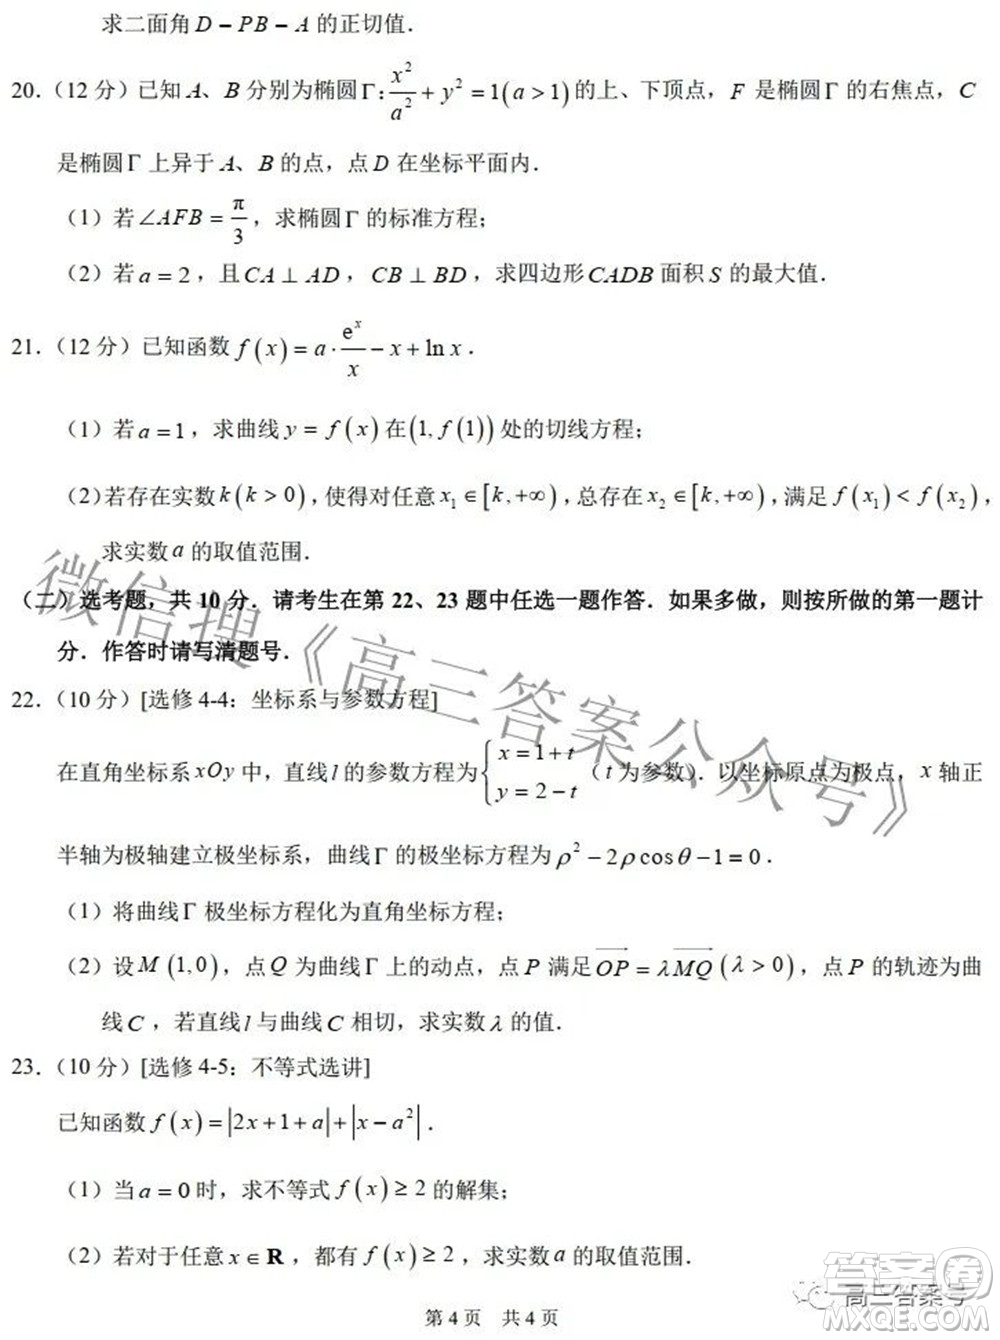 求二面角 D－PB－A 的正切值．
20．（12 分）已知 A、B 分别为椭圆 Γ: x²/a² + y² = 1(a > 1) 的上、下顶点，F 是椭圆 Γ 的右焦点，C
是椭圆 Γ 上异于 A、B 的点，点 D 在坐标平面内．
（1）若 ∠AFB = π/3，求椭圆 Γ 的标准方程；
（2）若 a = 2，且 CA ⊥ AD，CB ⊥ BD，求四边形 CADB 面积 S 的最大值．
21．（12 分）已知函数 f(x) = a · eˣ/x − x + ln x．
（1）若 a = 1，求曲线 y = f(x) 在 (1, f(1)) 处的切线方程；
（2）若存在实数 k(k > 0)，使得对任意 x₁ ∈ [k, +∞)，总存在 x₂ ∈ [k, +∞)，满足 f(x₁) < f(x₂)，
求实数 a 的取值范围．
（二）选考题，共 10 分．请考生在第 22、23 题中任选一题作答．如果多做，则按所做的第一题计
分．作答时请写清题号．
22．（10 分）[选修 4-4：坐标系与参数方程]
在直角坐标系 xOy 中，直线 l 的参数方程为 { x = 1 + t, y = 2 − t（t 为参数）．以坐标原点为极点，x 轴正
半轴为极轴建立极坐标系，曲线 Γ 的极坐标方程为 ρ² − 2ρcosθ − 1 = 0．
（1）将曲线 Γ 极坐标方程化为直角坐标方程；
（2）设 M(1, 0)，点 Q 为曲线 Γ 上的动点，点 P 满足 \overrightarrow{OP} = λ\overrightarrow{MQ} (λ > 0)，点 P 的轨迹为曲
线 C，若直线 l 与曲线 C 相切，求实数 λ 的值．
23．（10 分）[选修 4-5：不等式选讲]
已知函数 f(x) = |2x + 1 + a| + |x − a²|．
（1）当 a = 0 时，求不等式 f(x) ≥ 2 的解集；
（2）若对于任意 x ∈ R，都有 f(x) ≥ 2，求实数 a 的取值范围．
第 4 页 共 4 页
微信搜《高三答案公众号》
高三答案号
答案圈
MXQE.COM